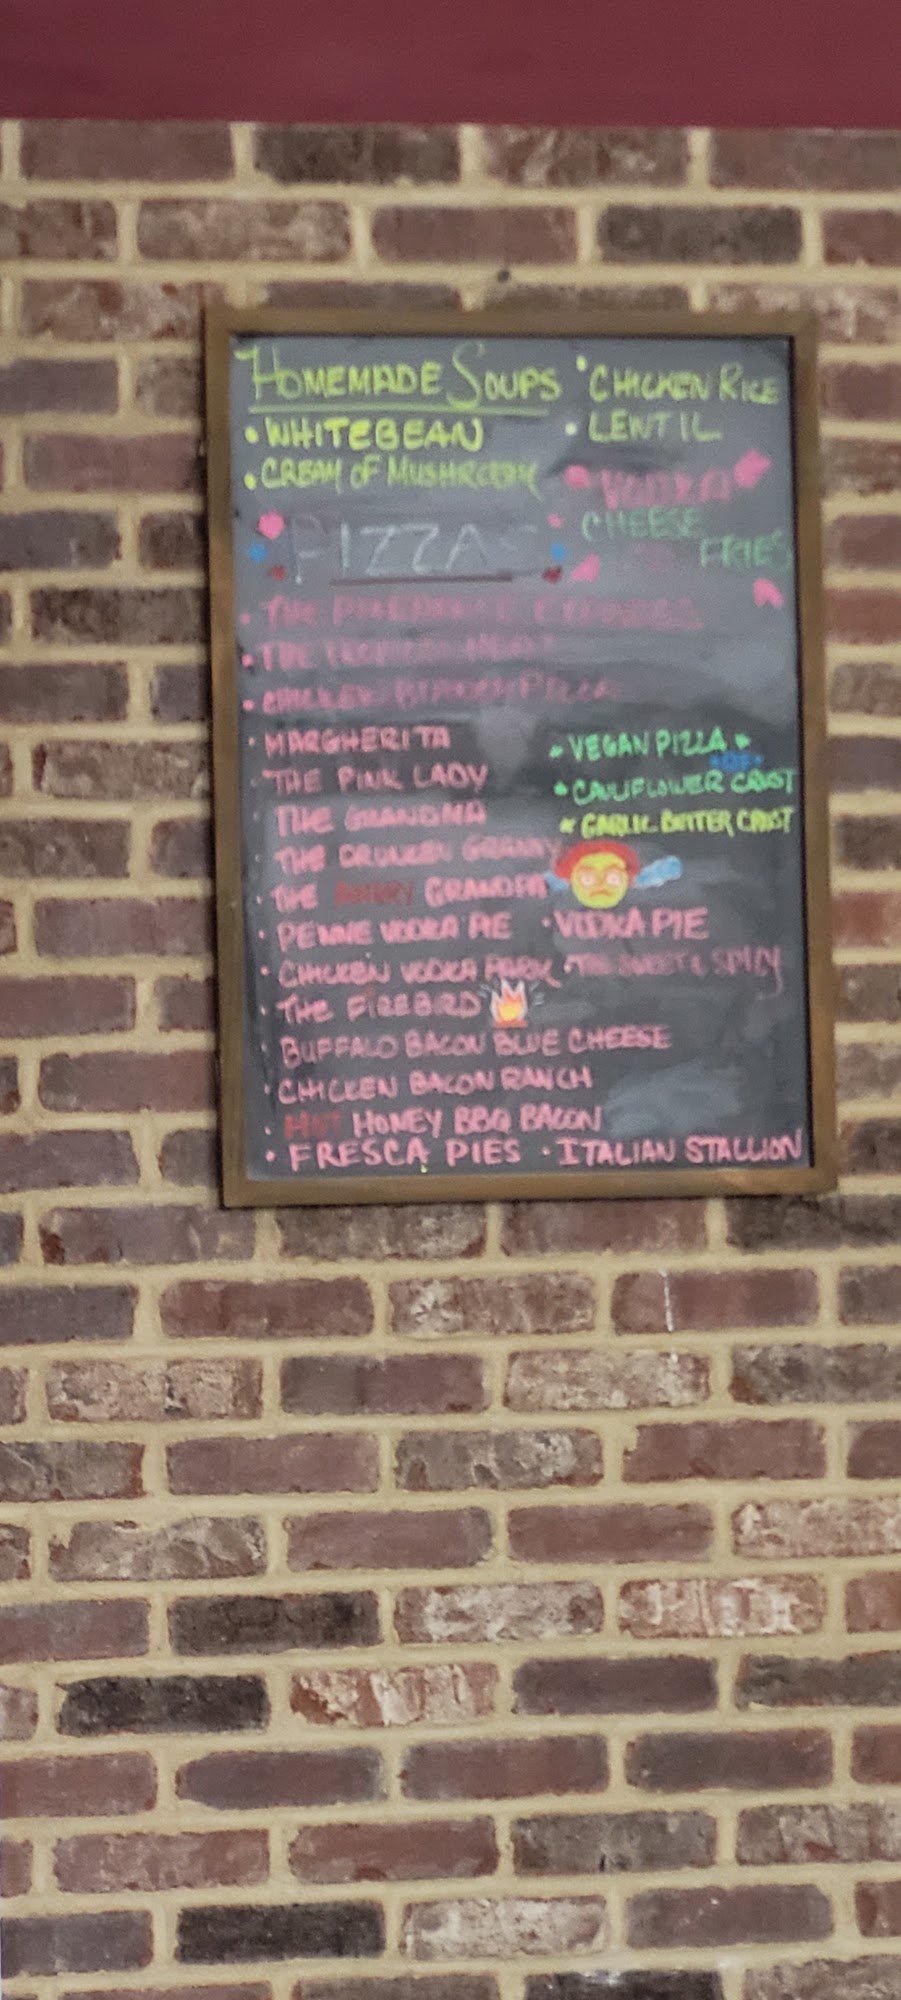 HOMEMADE SOUPS
• WHITEBEAN
• CREAM OF MUSHROOM
• CHICKEN RICE
• LENTIL
VODKA
CHEESE
FRIES
PIZZAS
• THE
• THE
• CHICKEN PIZZA
• MARGHERITA
• THE PINK LADY
THE GRANDMA
• THE DRUNKEN GRANNY
• THE ANGRY GRANDPA
• VEGAN PIZZA •
• CAULIFLOWER CRUST
* GARLIC BUTTER CRUST
• PENNE VODKA PIE • VODKA PIE
• CHICKEN VODKA PARM • THE SWEET & SPICY
• THE FIREBIRD
• BUFFALO BACON BLUE CHEESE
• CHICKEN BACON RANCH
• HOT HONEY BBQ BACON
• FRESCA PIES • ITALIAN STALLION